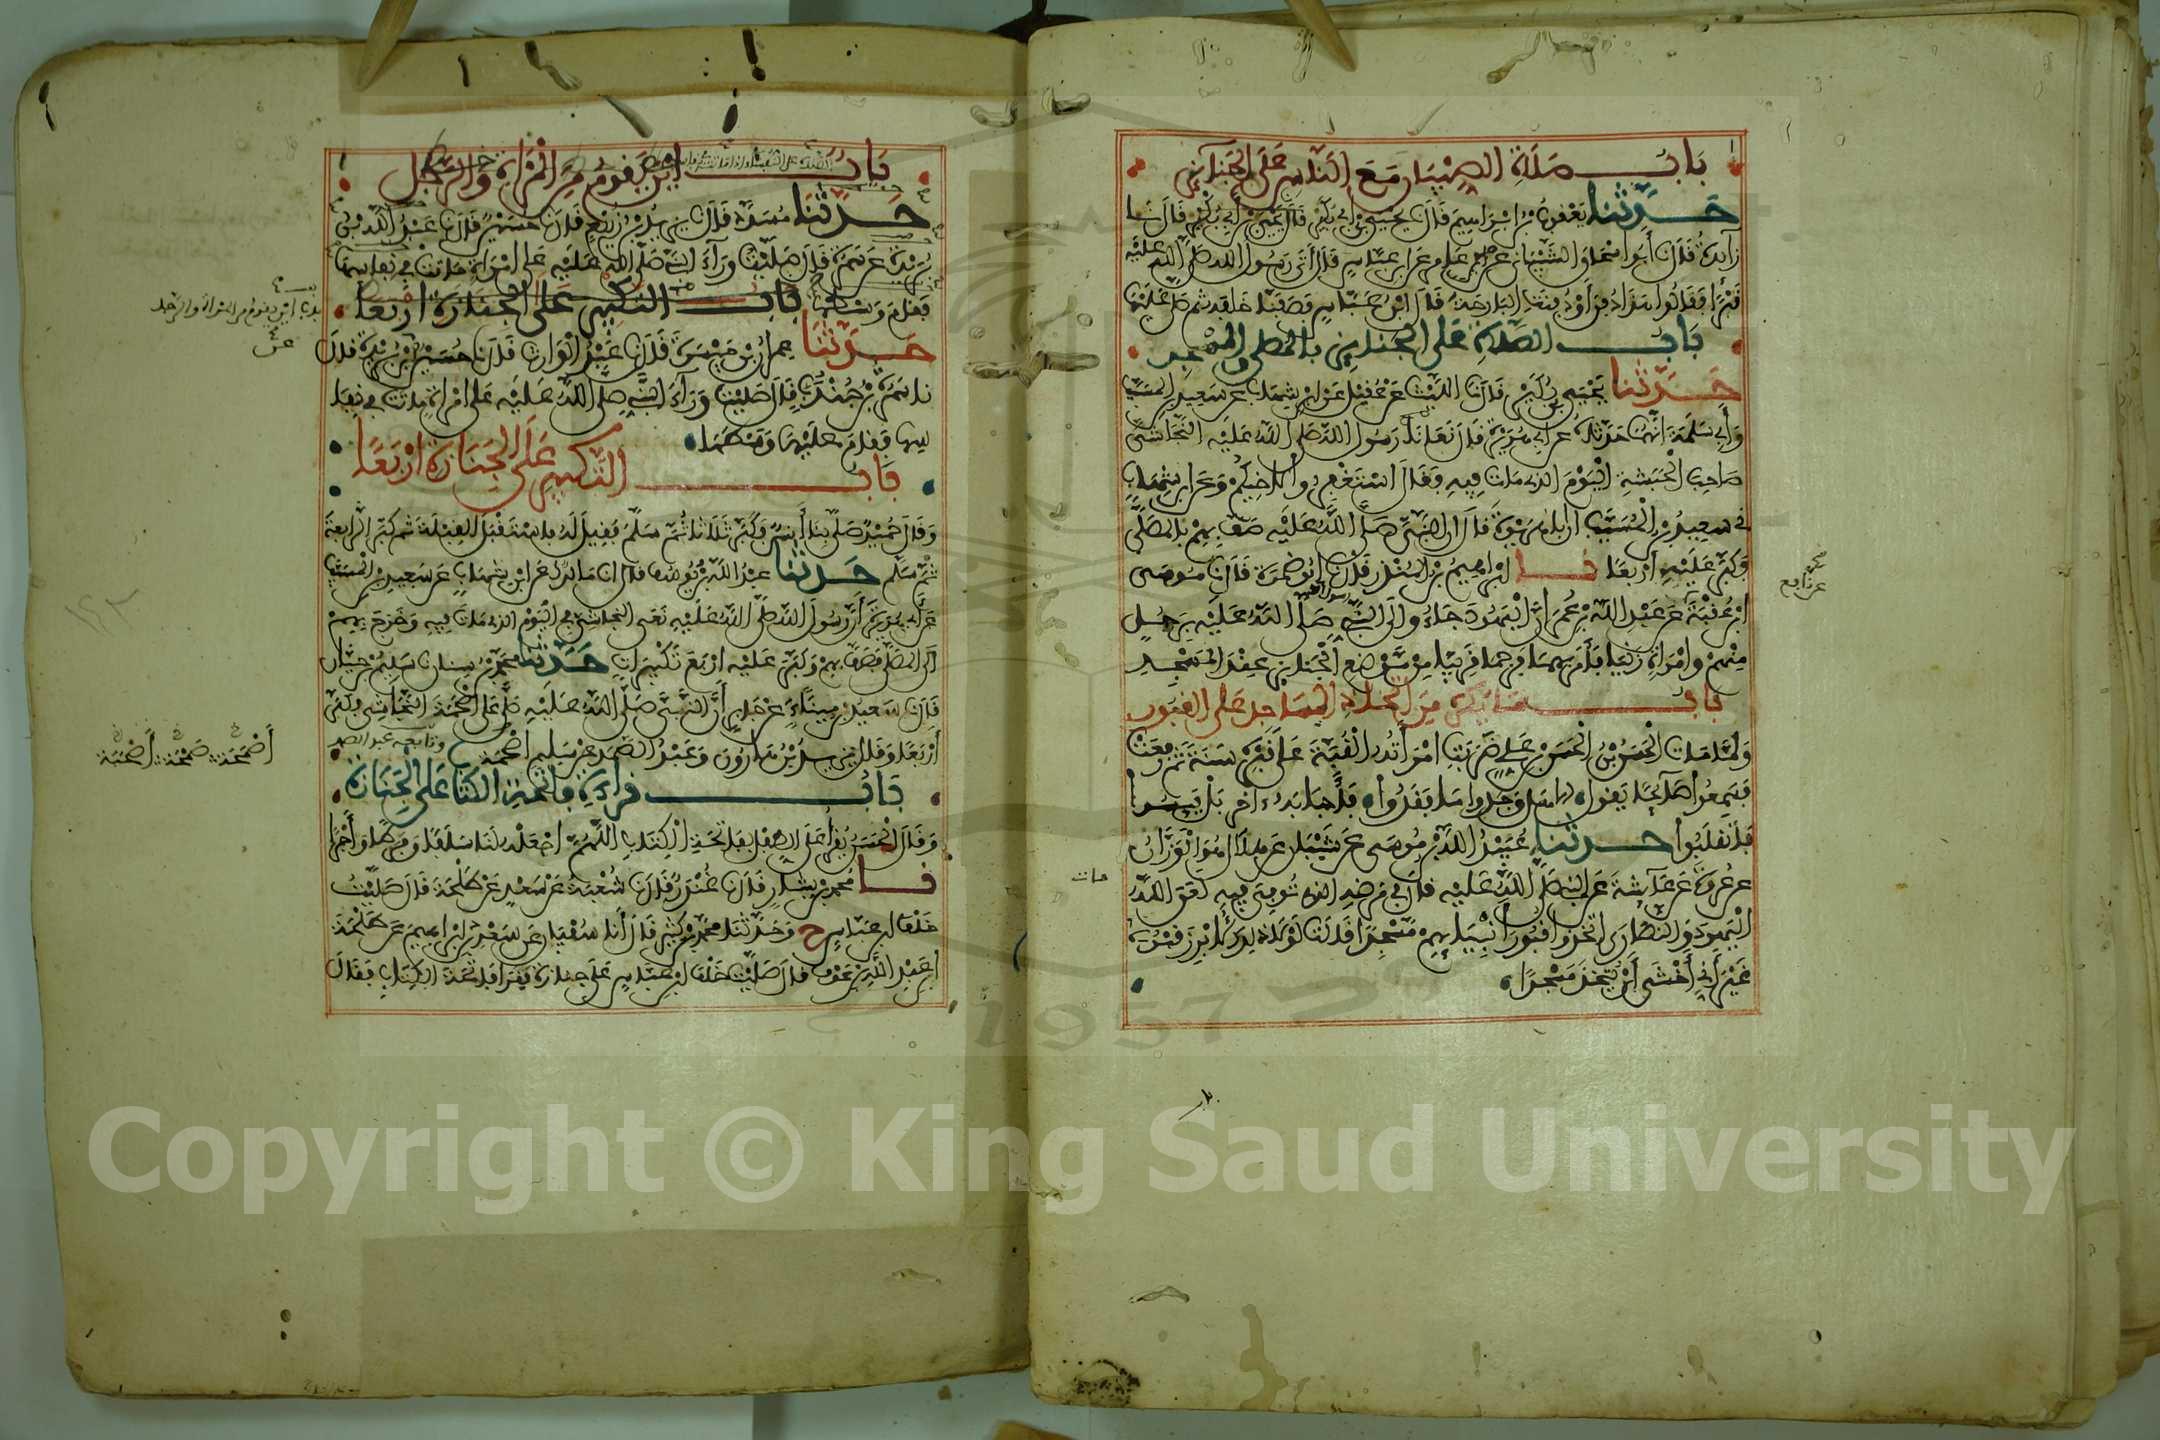 باب صلاة الصبيان مع الناس على الجنائز
حدثنا يعقوب بن ابراهيم قال نا يحيى بن ابي بكير قال نا
زائدة قال نا ابو اسحاق الشيباني عن عامر عن ابن عباس قال أتى رسول الله صلى الله عليه
قبرا فقالوا هذا دفن أو دفنت البارحة قال ابن عباس فصفنا خلفه ثم صلى عليها
باب الصلاة على الجنائز بالمصلى والمسجد
حدثنا يحيى بن بكير قال نا الليث عن عقيل عن ابن شهاب عن سعيد بن المسيب
وأبي سلمة انهما حدثاه عن ابي هريرة قال نعا لنا رسول الله صلى الله عليه النجاشي
صاحب الحبشة اليوم الذي مات فيه فقال استغفروا لاخيكم وعن ابن شهاب
ني سعيد بن المسيب ان ابا هريرة قال ان النبي صلى الله عليه صف بهم بالمصلى
وكبر عليه أربعا نا ابراهيم بن المنذر قال نا ابو ضمرة قال نا موسى
ابن عقبة عن عبد الله بن عمر ان اليهود جاءوا الى النبي صلى الله عليه برجل
منهم وامراة زنيا فأمر بهما فرجما قريبا من موضع الجنائز عند المسجد
باب ما يكره من اتخاذ المساجد على القبور
ولما مات الحسن بن الحسن بن علي ضربت امرأته القبة على قبره سنة ثم رفعت
فسمعوا صائحا يقول هل وجدوا ما فقدوا فأجابه آخر بل يئسوا
فانقلبوا حدثنا عبيد الله بن موسى عن شيبان عن هلال هو الوزان
عن عروة عن عائشة عن النبي صلى الله عليه قال في مرضه الذي توفي فيه لعن الله
اليهود والنصارى اتخذوا قبور أنبيائهم مسجدا قالت ولولا ذلك لأبرز قبره
غير أني أخشى أن يتخذ مسجدا
باب أين يقوم من المرأة والرجل
حدثنا مسدد قال نا يزيد بن زريع قال نا حسين قال نا عبد الله بن
بريدة عن سمرة قال صليت وراء النبي صلى الله عليه على امرأة ماتت في نفاسها
فقام وسطها باب التكبير على الجنازة أربعا
حدثنا عمران بن ميسرة قال نا عبد الوارث قال نا حسين عن ابن بريدة قال
نا سمرة بن جندب قال صليت وراء النبي صلى الله عليه على امرأة ماتت في نفا
سها فقام عليها وسطها
باب التكبير على الجنازة أربعا
وقال حميد صلى بنا أنس وكبر ثلاثا ثم سلم فقيل له فاستقبل القبلة ثم كبر الرابعة
ثم سلم حدثنا عبد الله بن يوسف قال انا مالك عن ابن شهاب عن سعيد بن المسيب
عن أبي هريرة أن رسول الله صلى الله عليه نعى النجاشي في اليوم الذي مات فيه وخرج بهم
الى المصلى فصف بهم وكبر عليه أربع تكبيرات حدثنا محمد بن سنان نا سليم بن حيان
قال نا سعيد بن ميناء عن جابر أن النبي صلى الله عليه صلى على أصحمة النجاشي فكبر
أربعا وقال يزيد بن هارون وعبد الصمد عن سليم أصحمة وتابعه عبد الصمد
باب قراءة فاتحة الكتاب على الجنازة
وقال الحسن يقرأ على الطفل بفاتحة الكتاب اللهم اجعله لنا سلفا وفرطا وأجرا
نا محمد بن بشار قال نا غندر قال نا شعبة عن سعد عن طلحة قال صليت
خلف ابن عباس ح وحدثنا محمد بن كثير قال أنا سفيان عن سعد بن ابراهيم عن طلحة
ابن عبد الله بن عوف قال صليت خلف ابن عباس على جنازة فقرأ فاتحة الكتاب فقال
باب أين يقوم من المرأة والرجل
أصحمة صحمة أصحبة
Copyright © King Saud University
1957